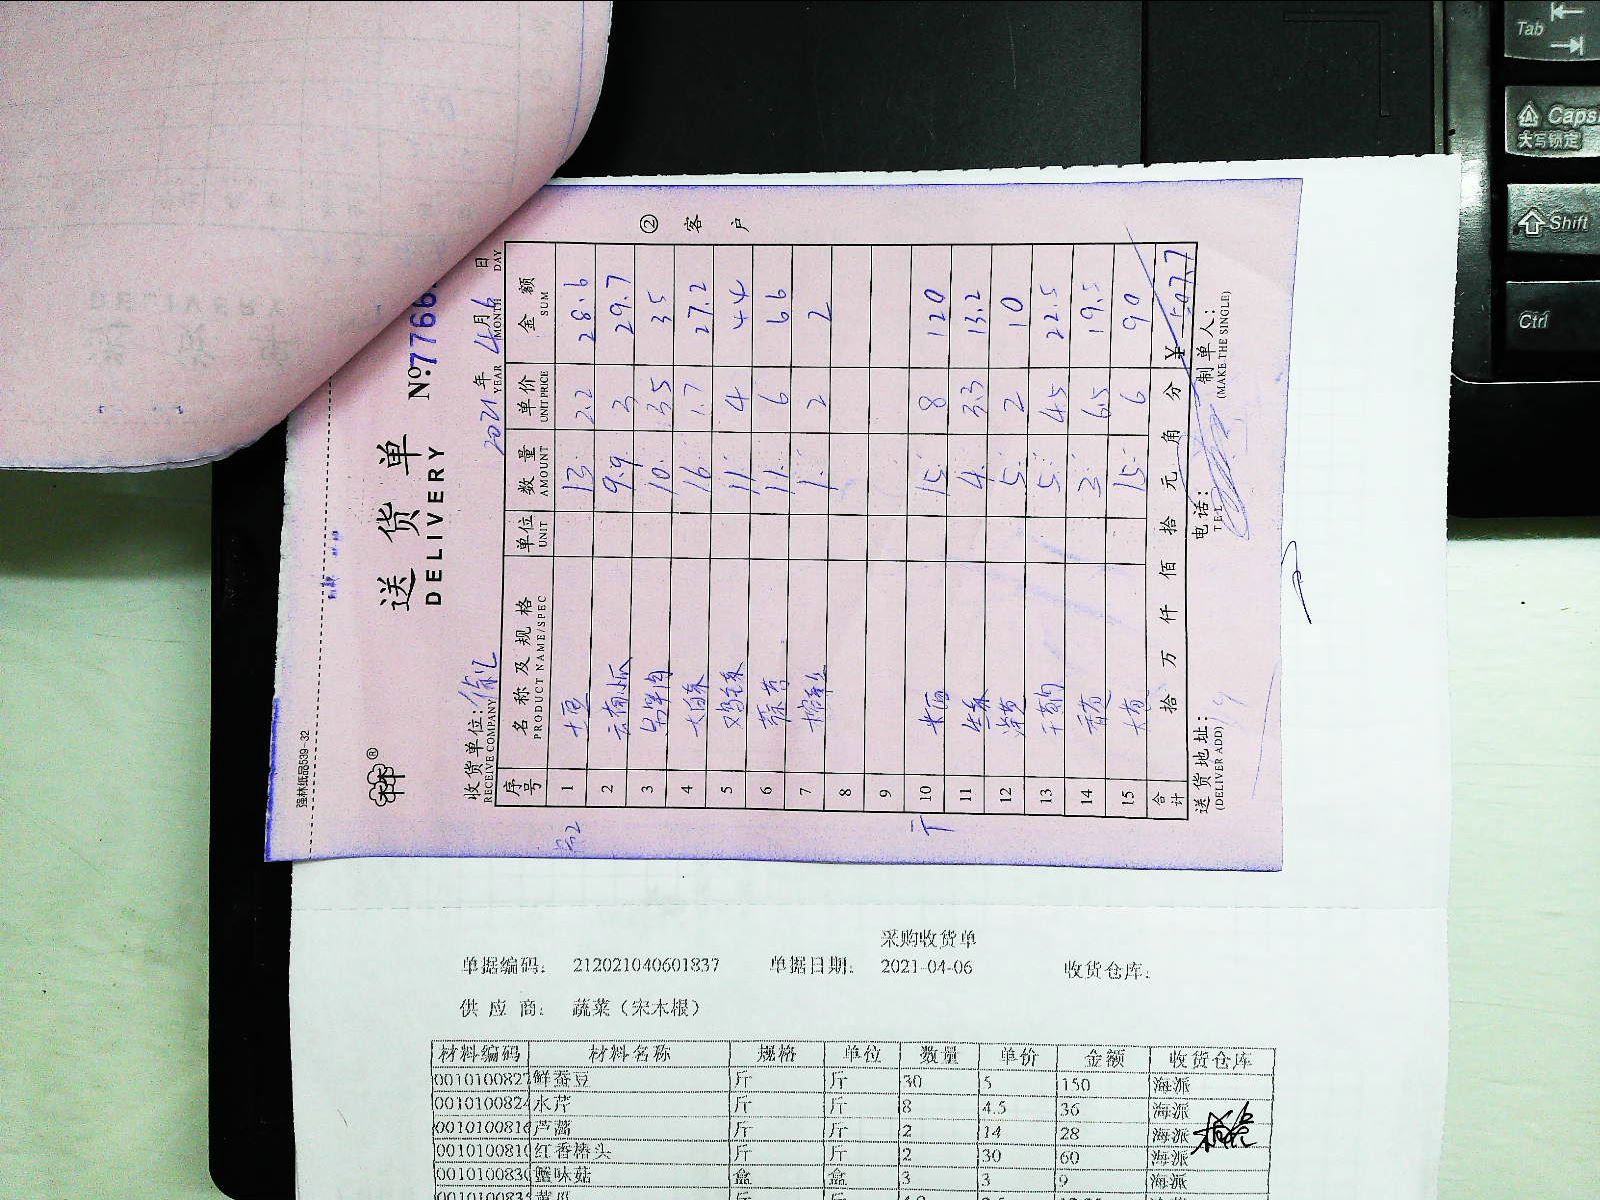 强林纸品539-32
送货单
DELIVERY
№7766
收货单位:
RECEIVE COMPANY
2021年4月6日
YEAR MONTH DAY
序号 名称及规格 单位 数量 单价 金额
PRODUCT NAME/SPEC UNIT AMOUNT UNIT PRICE SUM
1 土豆 13 2.2 28.6
2 云南小瓜 9.9 3 29.7
3 10 3.5 35
4 大白菜 16 1.7 27.2
5 鸡毛菜 11 4 44
6 蒜苗 11 6 66
7 1 2 2
8
9
10 15 8 120
11 生菜 4 3.3 13.2
12 5 2 10
13 5 4.5 22.5
14 3 6.5 19.5
15 15 6 90
合计 拾万仟佰拾元角分 ¥597.7
送货地址:
(DELIVER ADD)
电话:
TEL
制单人:
(MAKE THE SINGLE)
②客户
采购收货单
单据编码: 212021040601837 单据日期: 2021-04-06 收货仓库:
供应商: 蔬菜（宋木根）
材料编码 材料名称 规格 单位 数量 单价 金额 收货仓库
0010100827 鲜蚕豆 斤 斤 30 5 150 海派
0010100824 水芹 斤 斤 8 4.5 36 海派
0010100816 芦蒿 斤 斤 2 14 28 海派
0010100810 红香椿头 斤 斤 2 30 60 海派
0010100830 蟹味菇 盒 盒 3 3 9 海派
Tab
Caps
大写锁定
Shift
Ctrl